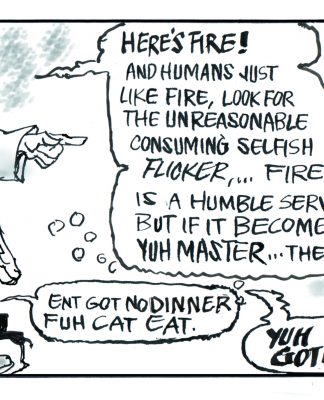 HERE'S FIRE!
AND HUMANS JUST
LIKE FIRE, LOOK FOR
THE UNREASONABLE
CONSUMING SELFISH
FLICKER,... FIRE
IS A HUMBLE SERV
BUT IF IT BECOME
YUH MASTER... THE
ENT GOT NO DINNER
FUH CAT EAT.
YUH
GOT